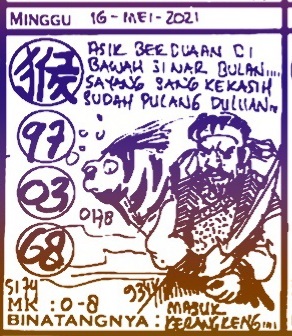 MINGGU 16-MEI-2021
ASIK BERDUAAN DI
BAWAH SINAR BULAN....
SAYANG SANG KEKASIH
SUDAH PULANG DULUAN..
猴
97
03
0178
68
5174
9344
MK : 0-8
MASUK
BINATANGNYA : KERANGKENG...